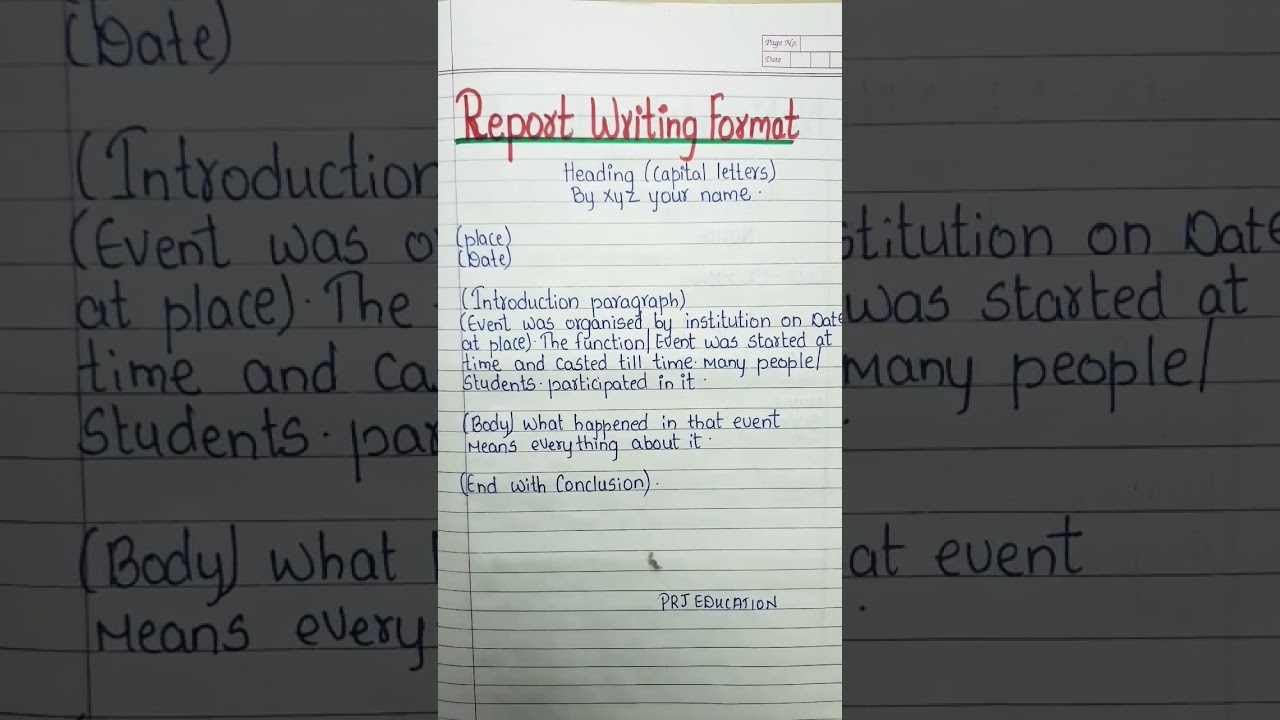 Page No.
Date
Report Writing Format
Heading (Capital letters)
By xyz your name.
(place)
(Date)
(Introduction paragraph)
(Event was organised by institution on Date
at place). The function/Event was started at
time and casted till time. Many people/
Students. participated in it.
(Body) what happened in that event
Means everything about it.
(End with Conclusion).
PRJ EDUCATION